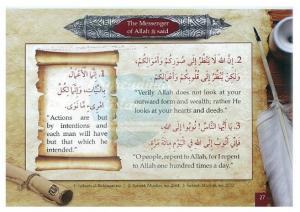 The Messenger
of Allah ﷺ said
1. إِنَّمَا الْأَعْمَالُ
بِالنِّيَّاتِ، وَإِنَّمَا لِكُلِّ
امْرِئٍ مَا نَوَى
"Actions are but
by intentions and
each man will have
but that which he
intended."
2. إِنَّ اللهَ لَا يَنْظُرُ إِلَى صُوَرِكُمْ وَأَمْوَالِكُمْ،
وَلَكِنْ يَنْظُرُ إِلَى قُلُوبِكُمْ وَأَعْمَالِكُمْ
"Verily Allah does not look at your
outward form and wealth; rather He
looks at your hearts and deeds."
3. يَا أَيُّهَا النَّاسُ! تُوبُوا إِلَى اللهِ،
فَإِنِّي أَتُوبُ إِلَى اللهِ فِي الْيَوْمِ مِائَةَ مَرَّةٍ
"O people, repent to Allah, for I repent
to Allah one hundred times a day."
27